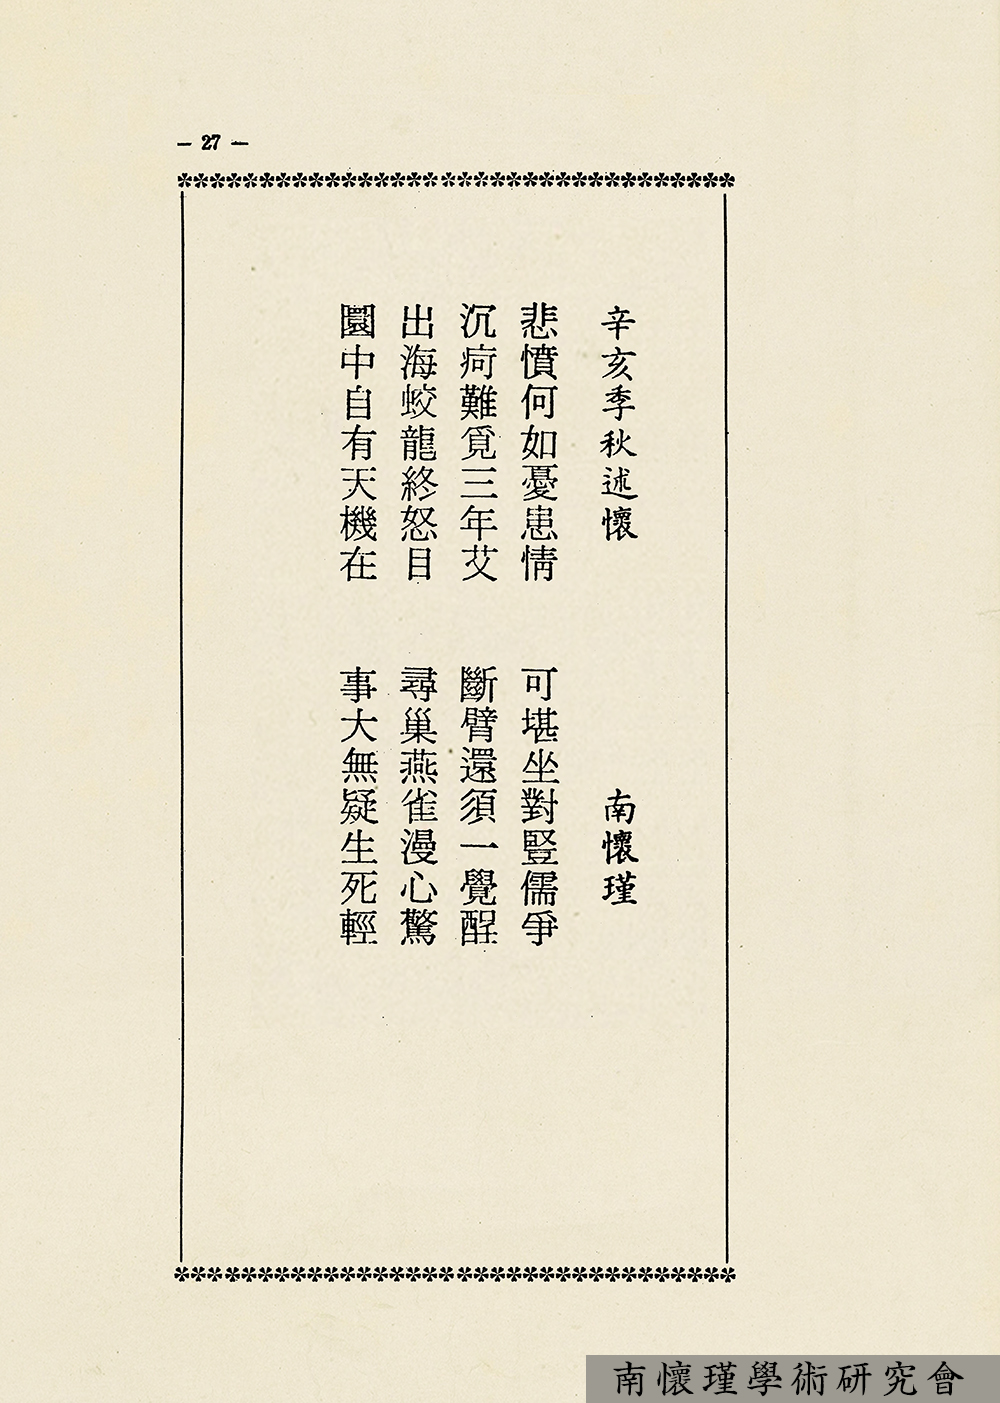 — 27 —
辛亥季秋述懷
南懷瑾
悲憤何如憂患情 可堪坐對豎儒爭
沉疴難覓三年艾 斷臂還須一覺醒
出海蛟龍終怒目 尋巢燕雀漫心驚
圜中自有天機在 事大無疑生死輕
南懷瑾學術研究會